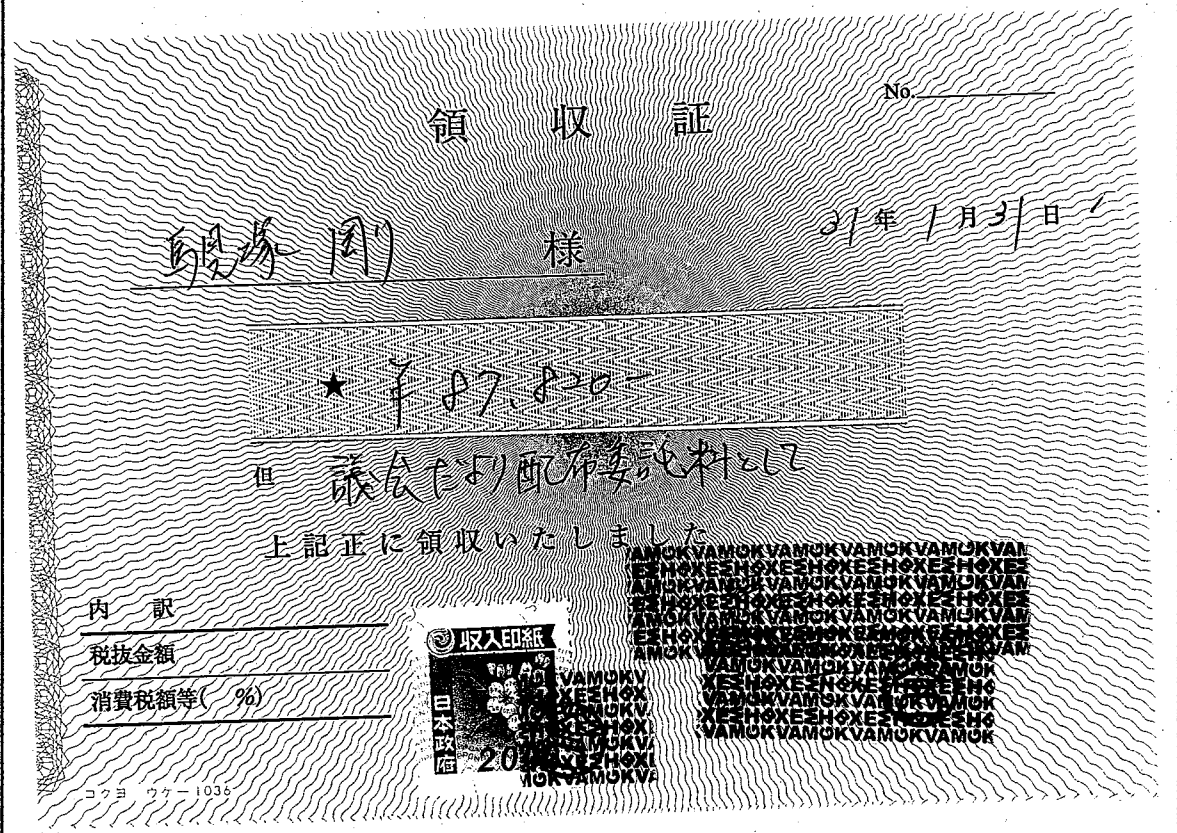 No.
領収証
31年1月31日
馬見塚 剛 様
★ ¥87,820-
但 議会だより配布委託料として
上記正に領収いたしました
内訳
税抜金額
消費税額等( %)
収入印紙
日本政府
20
コクヨ ウケー1036